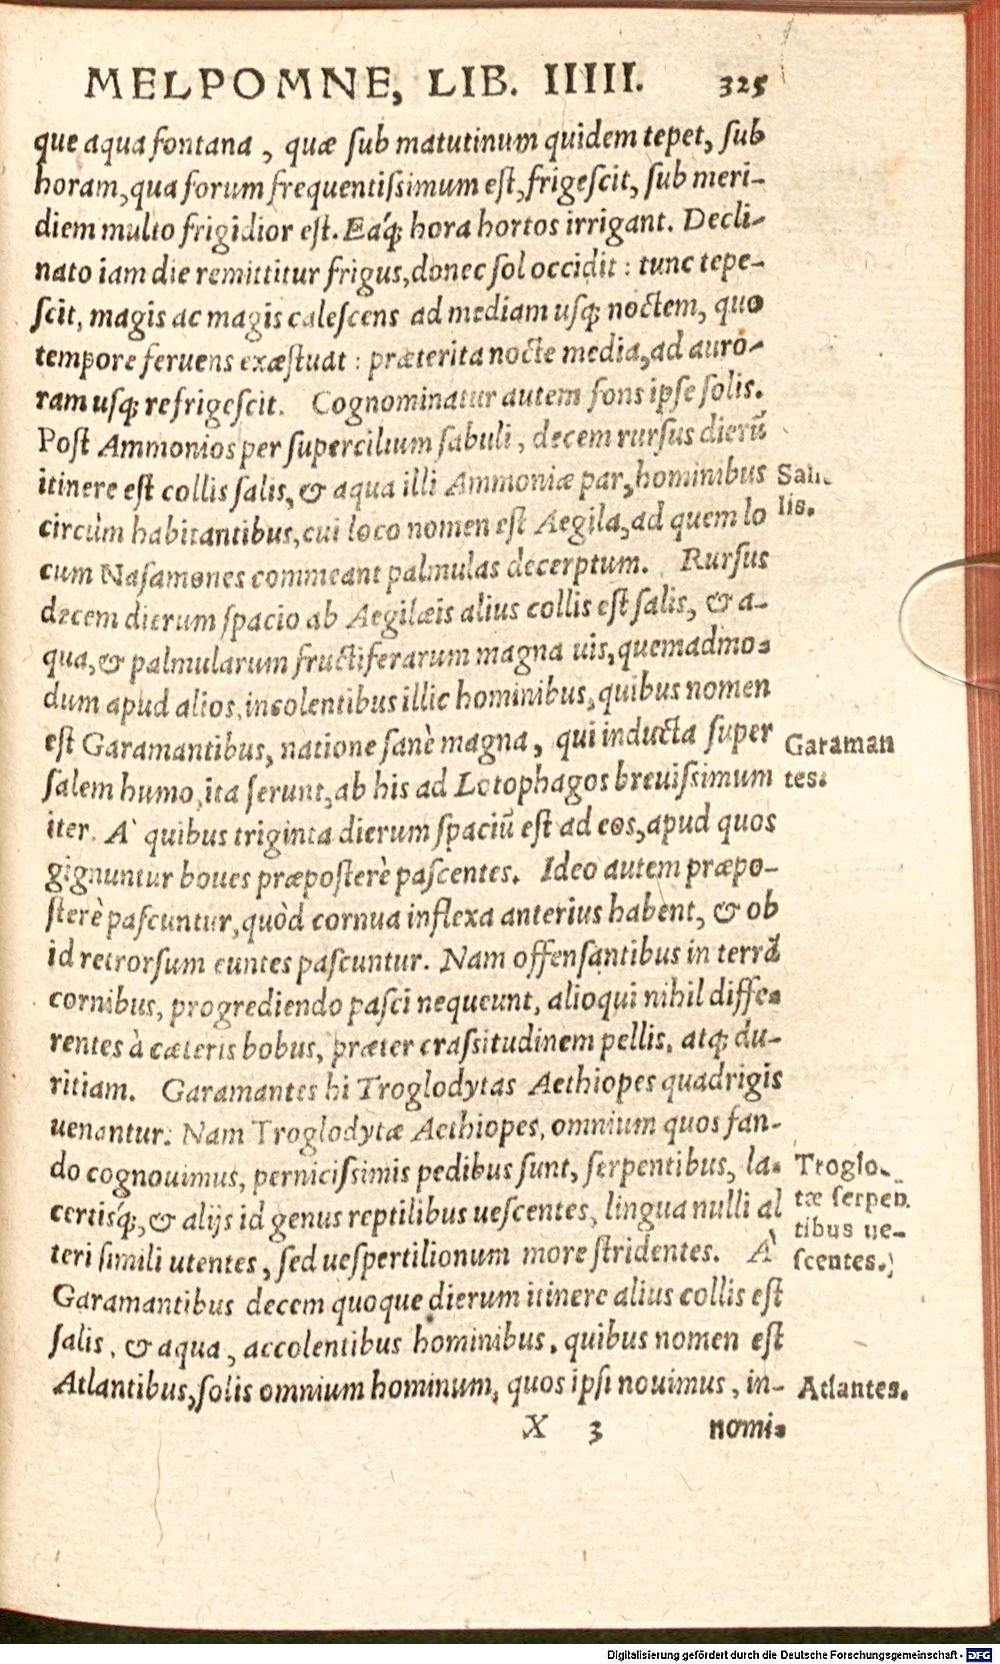 MELPOMNE, LIB. IIIII. 325
que aqua fontana, quæ sub matutinum quidem tepet, sub
horam, qua forum frequentissimum est, frigescit, sub meri-
diem multo frigidior est. Eáq; hora hortos irrigant. Decli-
nato iam die remittitur frigus, donec sol occidit: tunc tepe-
scit, magis ac magis calescens ad mediam usq; noctem, quo
tempore feruens exæstuat: præterita nocte media, ad auro-
ram usq; refrigescit. Cognominatur autem fons ipse solis.
Post Ammonios per supercilium sabuli, decem rursus dierū
itinere est collis salis, & aqua illi Ammoniæ par, hominibus
circùm habitantibus, cui loco nomen est Aegila, ad quem lo
cum Nasamones commeant palmulas decerptum. Rursus
decem dierum spacio ab Aegilæis alius collis est salis, & a-
qua, & palmularum fructiferarum magna uis, quemadmo-
dum apud alios, incolentibus illic hominibus, quibus nomen
est Garamantibus, natione sanè magna, qui inducta super
Garaman
tes.
salem humo, ita serunt, ab his ad Lotophagos breuissimum
iter. A` quibus triginta dierum spaciū est ad eos, apud quos
gignuntur boues præposterè pascentes. Ideo autem præpo-
sterè pascuntur, quòd cornua inflexa anterius habent, & ob
id retrorsum euntes pascuntur. Nam offensantibus in terrā
cornibus, progrediendo pasci nequeunt, alioqui nihil diffe-
rentes à cæteris bobus, præter crassitudinem pellis, atq; du-
ritiam. Garamantes hi Troglodytas Aethiopes quadrigis
uenantur: Nam Troglodytæ Aethiopes, omnium quos fan-
do cognouimus, pernicissimis pedibus sunt, serpentibus, la-
certisq́;, & alijs id genus reptilibus uescentes, lingua nulli al
teri simili utentes, sed uespertilionum more stridentes. À
Troglo-
tæ serpen
tibus ue-
scentes.
Garamantibus decem quoque dierum itinere alius collis est
salis, & aqua, accolentibus hominibus, quibus nomen est
Atlantibus, solis omnium hominum, quos ipsi nouimus, in-
Atlantes.
X 3 nomi-
Digitalisierung gefördert durch die Deutsche Forschungsgemeinschaft - DFG